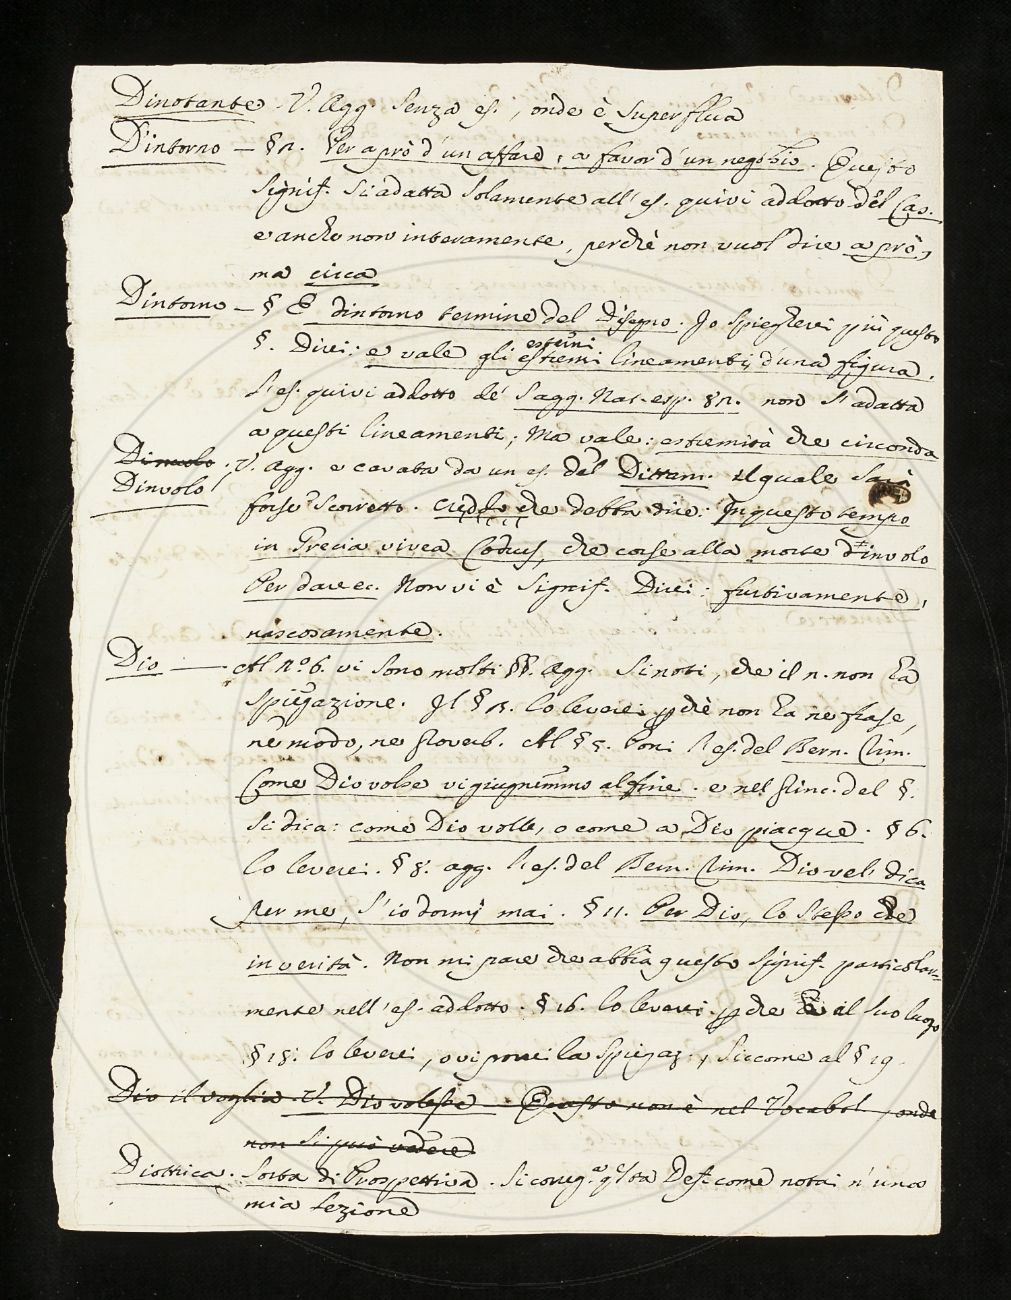 Dinotante. V. Agg. senza es., onde è superflua
D'intorno — § 2. Per a prò d'un affare, a favor d'un negozio. Questo
signif. si adatta solamente all'es. quivi addotto del Cas.
e anche non interamente, perchè non vuol dire a prò,
ma circa
Dintorno — § E dintorno termine del Disegno. Io spiegherei più questo
§. Direi: e vale gli estremi lineamenti d'una figura.
estremi
L'es. quivi addotto de' Sagg. Nat. esp. non s'adatta
a questi lineamenti; Ma vale: estremità che circonda
Dinvolo
Dinvolo. V. agg. e cavata da un es. del Dittam. il quale sarà
forse scorretto. Credo che debba dire: In questo tempo
in Grecia vivea Codrus, che corse alla morte d'involo
Per dare ec. Non vi è signif. Direi: furtivamente,
nascosamente.
Dio — Al n.º 6. vi sono molti §§. agg. Si noti, che il n. non ha
spiegazione. Il § lo leverei perchè non ha ne frase,
ne modo, ne proverb. Al § 5. Poni l'es. del Bern. rim.
Come Dio volse vi giugnimmo al fine. e nel princ. del §.
si dica: come Dio volle, o come a Dio piacque. § 6.
lo leverei. § 8. agg. l'es. del Bern. rim. Dio vel' dica
per me, s'io dormj mai. § 11. Per Dio, lo stesso che
in verità. Non mi pare che abbia questo signif. particolar=
mente nell'es. addotto. § 16. lo leverei perchè è al suo luogo
§ 18. lo leverei, o vi porrei la spiegaz., siccome al § 19.
Dio il voglia. V. Dio volesse. Questo non è nel Vocabol. onde
non si può vedere
Diottrica. Sorta di Prospettiva. Si corregga q̃sta Def. come notai n'una
mia lezione